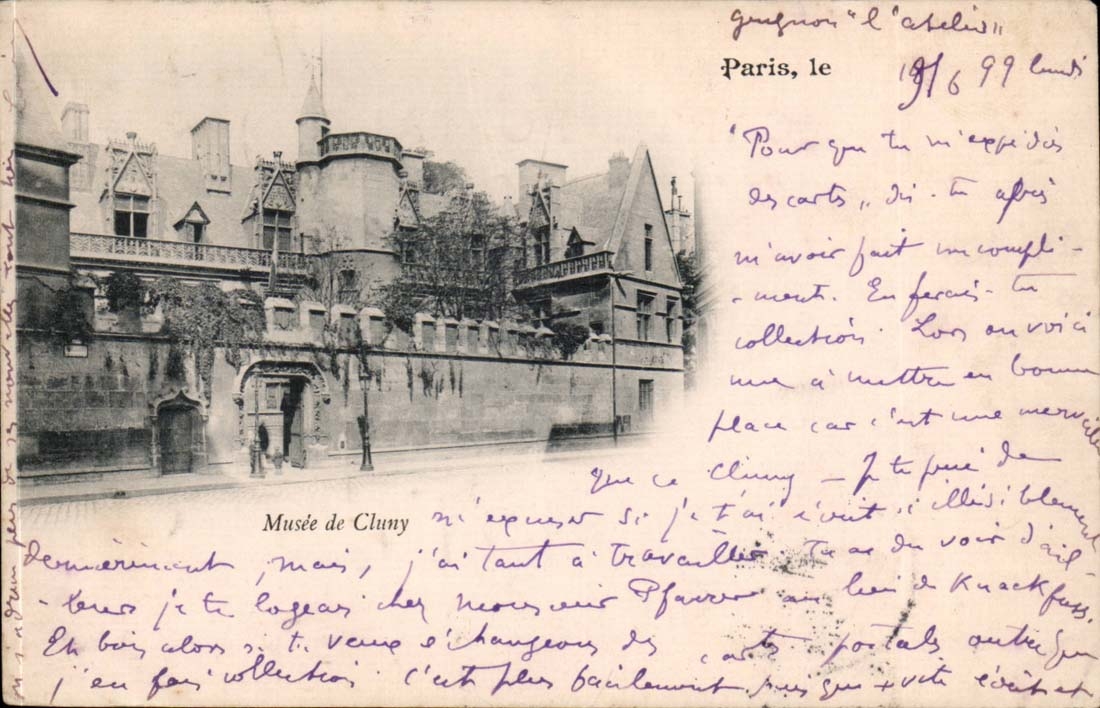 "l'atelier"
Paris, le 19/6 99 lundi
"Pour que tu m'expédies
des cartes", dis-tu après
m'avoir fait un compli-
-ment. En ferais-tu
collection Lors en voici
une à mettre en bonne
place car c'est une merveille
que ce Cluny – Je te prie de
m'excuser si je t'ai écrit si illisiblement
Musée de Cluny
dernièrement, mais, j'ai tant à travailler. Tu as du voir d'ail-
-leurs je te logeais chez monsieur au lieu de Knackfuss.
Eh bien alors si tu veux échangeons des cartes postales
j'en fais collection c'est plus facilement puisque + vite écrit et